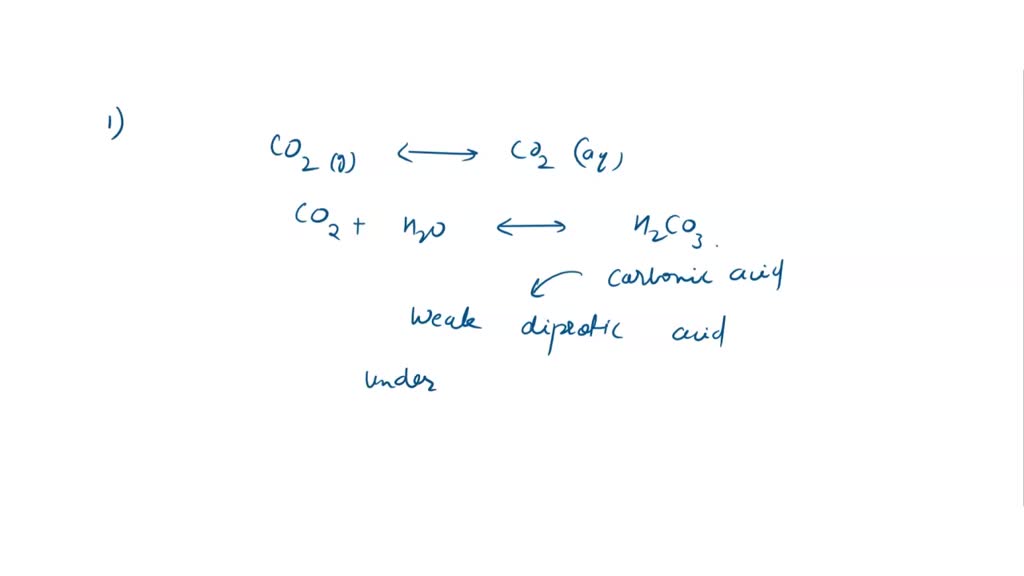 1)
CO₂ (g) ⟷ CO₂ (aq)
CO₂ + H₂O ⟷ H₂CO₃.
carbonic acid
weak diprotic acid
under